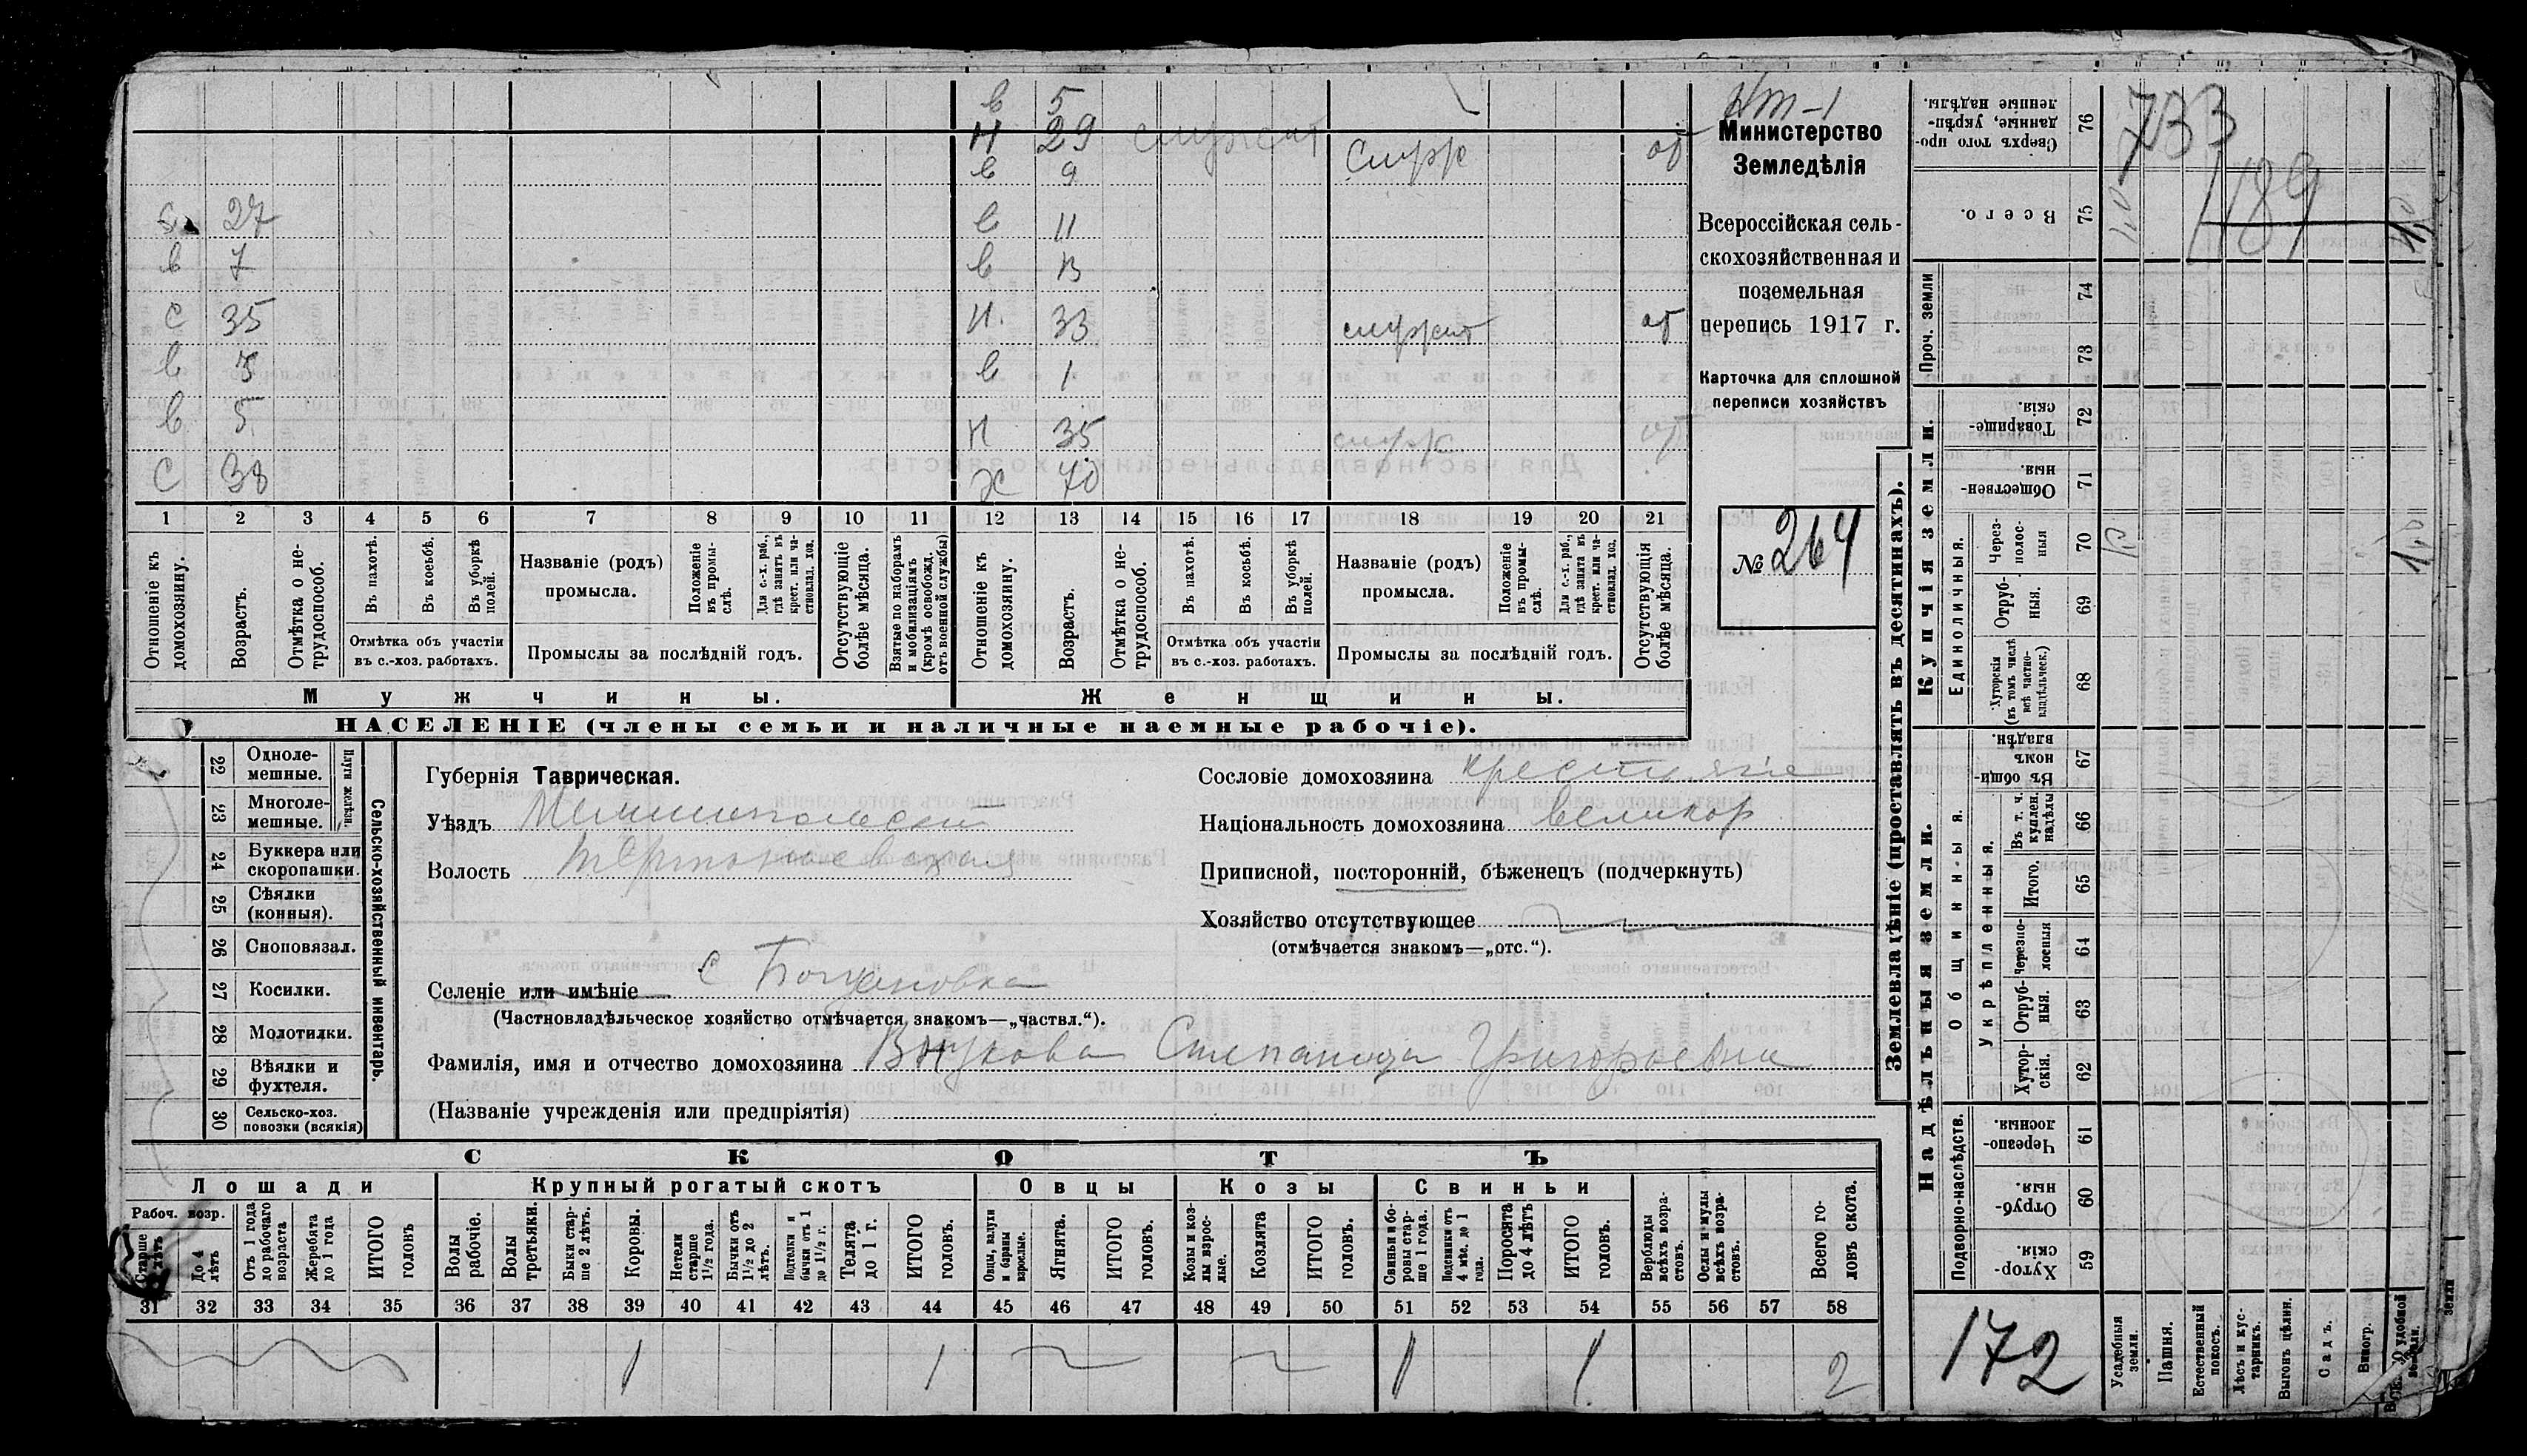 в 5
Н 29 служит
в 9 служ от
в 27 в 11
в 7 в 13
с 35 Н. 33 служит от
в 3 в 1
в 5
Н 35 служ от
с 38 Ж 70
1 2 3 4 5 6 7 8 9 10 11 12 13 14 15 16 17 18 19 20 21
Отношеніе къ домохозяину.
Возрастъ.
Отмѣтка о не-трудоспособ.
Въ пахотѣ.
Въ косьбѣ.
Въ уборкѣ полей.
Отмѣтка объ участіи
въ с.-хоз. работахъ.
Названіе (родъ)
промысла.
Положеніе въ промы-слѣ.
Для с.-х. раб., гдѣ занятъ въ крест. или ча-стновлад. хоз.
Промыслы за послѣдній годъ.
Отсутствующіе болѣе мѣсяца.
Взятые по наборамъ и мобилизаціямъ (кромѣ освобожд. отъ военной службы)
Отношеніе къ домохозяину.
Возрастъ.
Отмѣтка о не-трудоспособ.
Въ пахотѣ.
Въ косьбѣ.
Въ уборкѣ полей.
Отмѣтка объ участіи
въ с.-хоз. работахъ.
Названіе (родъ)
промысла.
Положеніе въ промы-слѣ.
Для с.-х. раб., гдѣ занята въ крест. или ча-стновлад. хоз.
Промыслы за послѣдній годъ.
Отсутствующія болѣе мѣсяца.
Мужчины.
Женщины.
НАСЕЛЕНІЕ (члены семьи и наличные наемные рабочіе).
Министерство
Земледѣлія
Всероссійская сель-
скохозяйственная и
поземельная
перепись 1917 г.
Карточка для сплошной
переписи хозяйствъ
№ 264
22 Одноле-мешные.
23 Многоле-мешные.
Плуги желѣзн.
24 Буккера или скоропашки.
25 Сѣялки (конныя).
26 Сноповязал.
27 Косилки.
28 Молотилки.
29 Вѣялки и фухтеля.
30 Сельско-хоз. повозки (всякія)
Сельско-хозяйственный инвентарь.
Губернія Таврическая.
Уѣздъ Мелитопольский
Волость
Селеніе или имѣніе с
(Частновладѣльческое хозяйство отмѣчается знакомъ—„частвл.“).
Фамилія, имя и отчество домохозяина Внукова Степанида Григорьевна
(Названіе учрежденія или предпріятія)
Сословіе домохозяина
Національность домохозяина великор
Приписной, посторонній, бѣженецъ (подчеркнуть)
Хозяйство отсутствующее
(отмѣчается знакомъ—„отс.“).
СКОТЪ
Лошади
Крупный рогатый скотъ
Овцы
Козы
Свиньи
Рабоч. возр.
Старше лѣтъ
До 4 лѣтъ
Отъ 1 года до рабочаго возраста
Жеребята до 1 года
ИТОГО головъ
Волы рабочіе.
Волы третьяки.
Быки стар-ше 2 лѣтъ.
Коровы.
Нетели старше 1½ года.
Бычки отъ 1½ до 2 лѣтъ.
Подтелки и бычки отъ 1 до 1½ г.
Телята до 1 г.
ИТОГО головъ.
Овцы, валухи и бараны взрослые.
Ягнята.
ИТОГО головъ.
Козы и коз-лы взрос-лые.
Козлята
ИТОГО головъ.
Свиньи и бо-ровы стар-ше 1 года.
Подсвинки отъ 4 мѣс. до 1 года.
Поросята до 4 лѣтъ
ИТОГО головъ.
Верблюды всѣхъ возра-стовъ.
Ослы и мулы всѣхъ возра-стовъ.
Всего го-ловъ скота.
31 32 33 34 35 36 37 38 39 40 41 42 43 44 45 46 47 48 49 50 51 52 53 54 55 56 57 58
1 1 1 1 2
Землевладѣніе (проставлять въ десятинахъ).
Сверхъ того про-данные, укрѣп-ленные надѣлы. 76
Всего. 75
Проч. земли
74
73
Купчія земли.
Товарище-скія. 72
Обществен-ныя. 71
Единоличныя.
Через-полос-ныя 70
Отруб-ныя. 69
Хуторскія (въ томъ числѣ всѣ частно-владѣльческ.) 68
Надѣльныя земли.
Общинныя.
Въ общи-номъ владѣн. 67
Укрѣпленныя.
Въ т. ч. куплен. надѣлы 66
Итого. 65
Черезпо-лосныя 64
Отруб-ныя. 63
Хутор-скія. 62
Подворно-наслѣдств.
Черезпо-лосныя. 61
Отруб-ныя. 60
Хутор-скія. 59
733
1189
172
Усадебныя земли.
Пашня.
Естественный покосъ.
Лѣсъ и кус-тарникъ.
Выгонъ цѣлин.
Садъ.
Виногр.